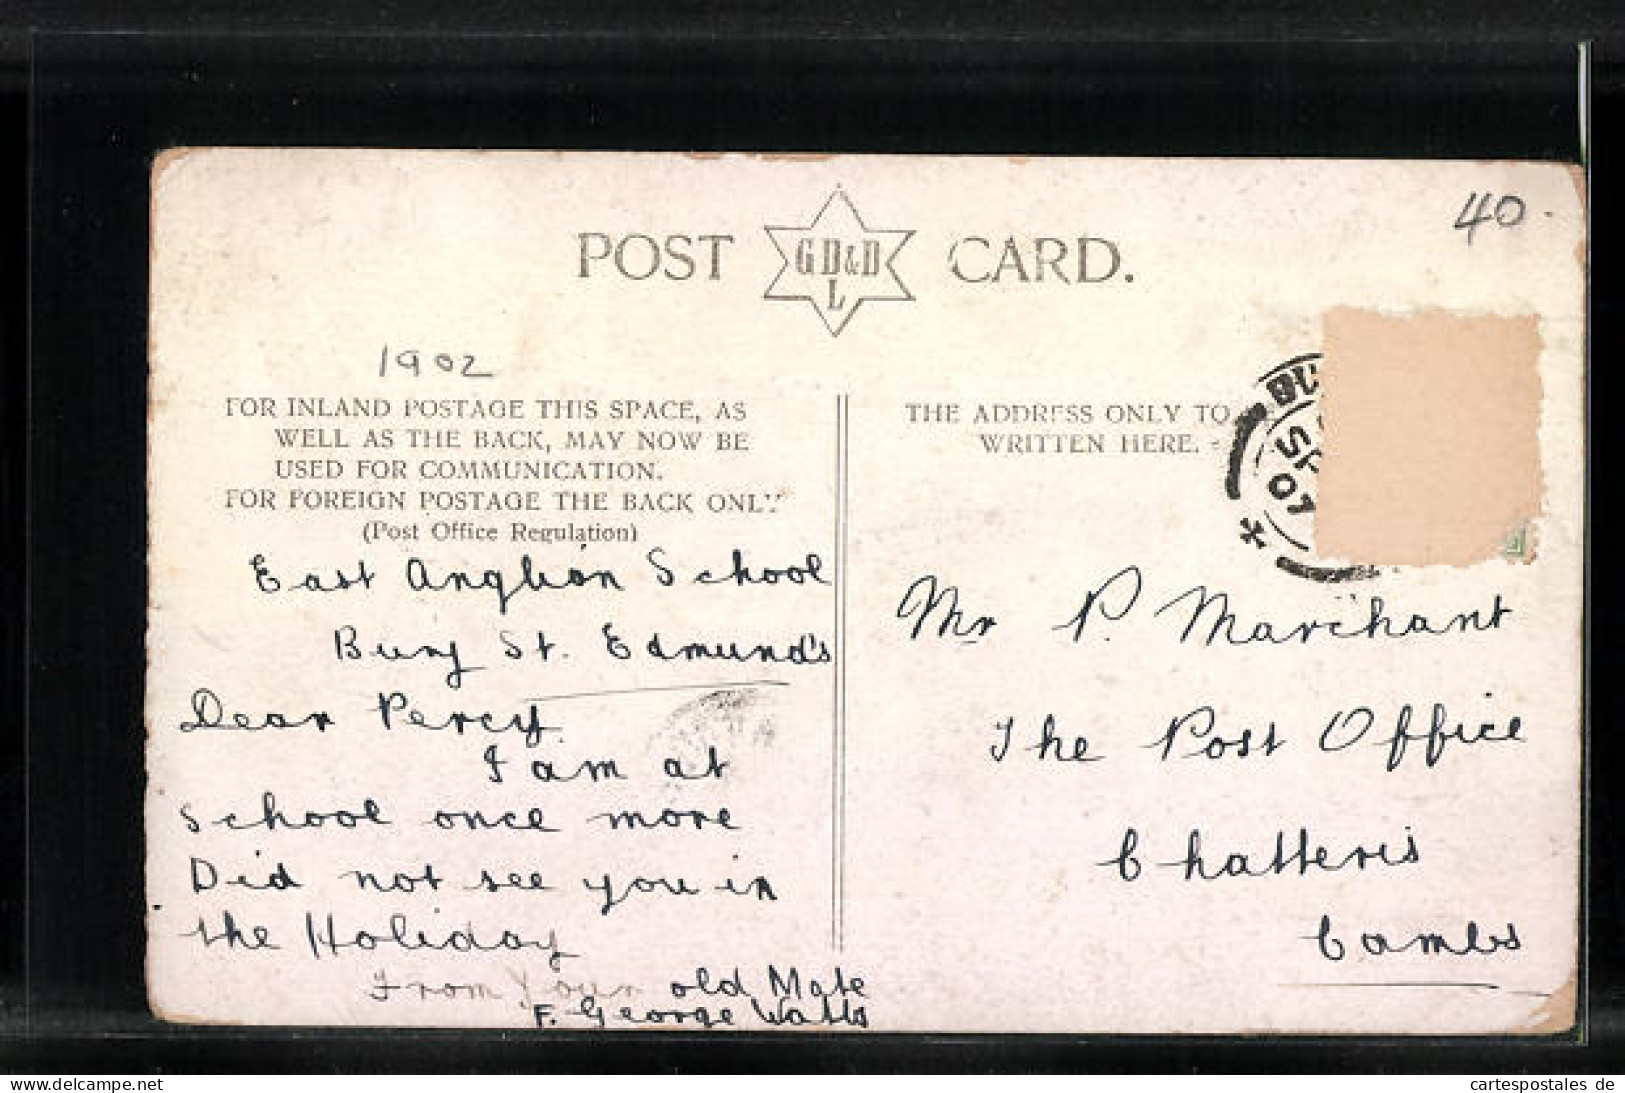 40
POST GD&D L CARD.
1902
FOR INLAND POSTAGE THIS SPACE, AS
WELL AS THE BACK, MAY NOW BE
USED FOR COMMUNICATION.
FOR FOREIGN POSTAGE THE BACK ONLY
(Post Office Regulation)
THE ADDRESS ONLY TO
WRITTEN HERE.
East Anglian School
Bury St. Edmund's
Dear Percy
I am at
School once more
Did not see you in
the Holiday
From Your old Mate
F. George Watts
Mr P. Marchant
The Post Office
Chatteris
Cambs
cartespostales de